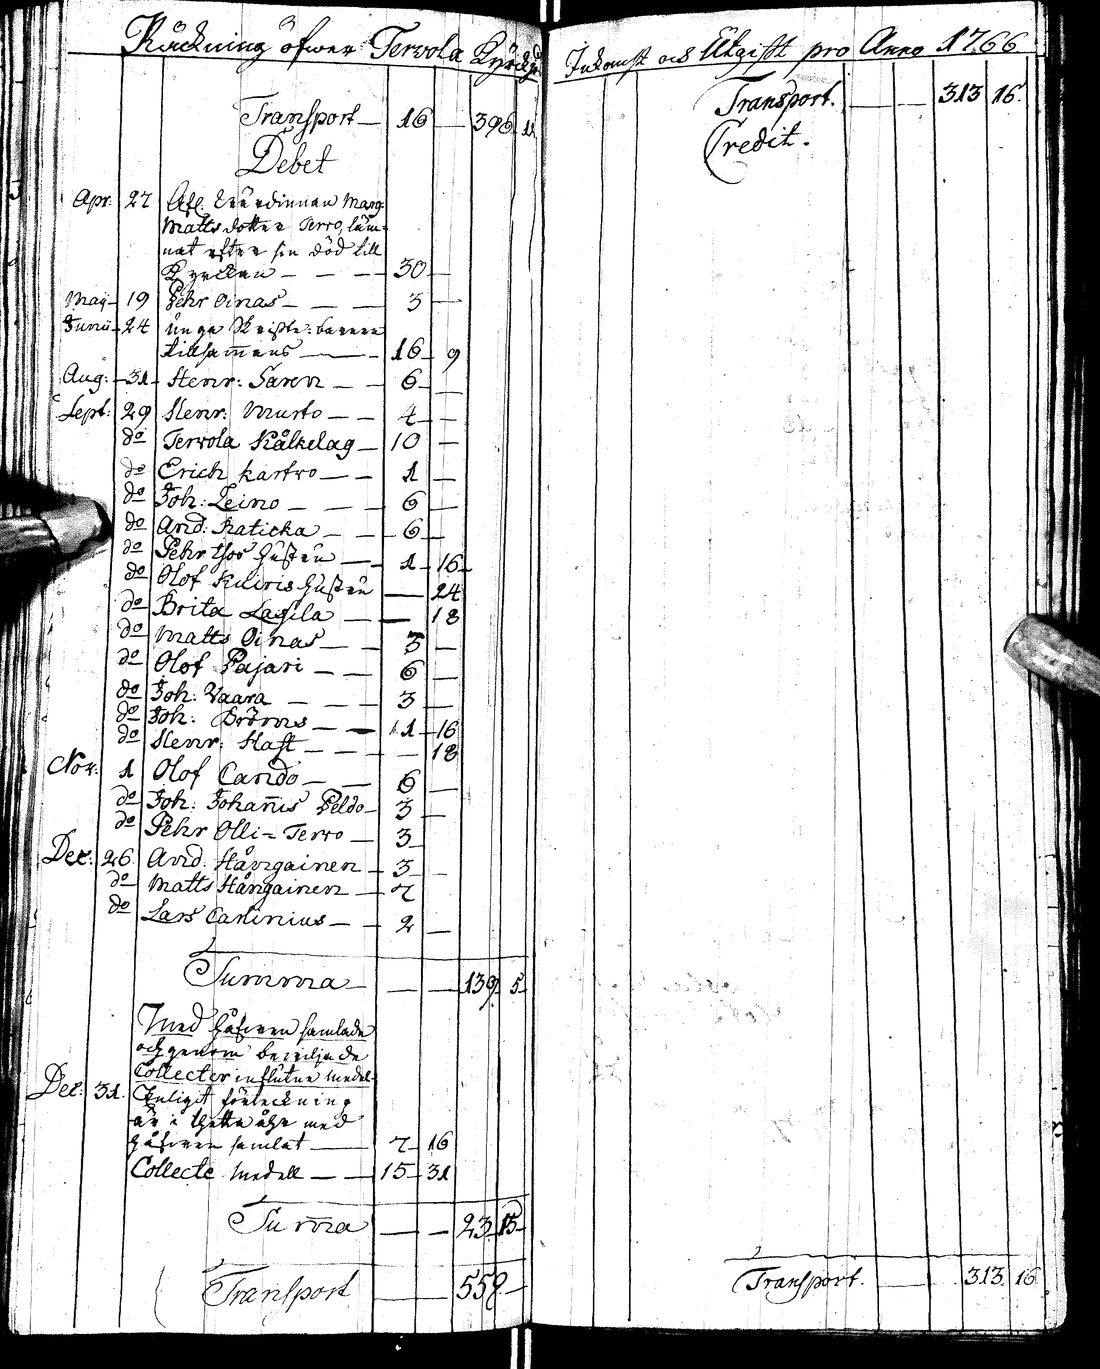 Räckning öfwer Tervola Kyrckjo
Transport — 16 — 396 11
Debet
Apr: 27 Afl. Enkedinnan Marg:
Matts dotter Tervo, läm-
nat efter sin död till
Kyrckan — — — 30 —
Maÿ 19 Pehr Oinas — — — 3 —
Junii 24 unga Skrifte-barnen
tillsam̄ans — — 16 9
Aug: 31 Henr: Saren — — 6 —
Sept: 29 Henr: Mursto — — 4 —
do Tervola Kålkelag — 10 —
do Erich Kastro — — 1 —
do Joh: Leino — — — 6 —
do And: Raticka — — 6 —
do Pehr Hustru — 1 16
do Olof Hustru — 24
do Brita Lassila — — 18
do Matts Oinas — — 3 —
do Olof Pajari — — 6 —
do Joh: Vaara — — — 3 —
do Joh: Bröms — — 1 16
do Henr: Hast — — — 18
Nov: 1 Olof Cando — — 6 —
do Joh: Johan̄is Peldo — 3 —
do Pehr Olli-Tervo — 3 —
Dec: 26 And: Hångainen — 3 —
do Matts Hångainen — 2
do Lars Carlinius — 2 —
Summa — — 139 5
Med håfwen samlade
och genom beviljade
Collecter influtne medel
Dec: 31. Enligit förteckning
är i thetta åhr med
håfwen samlat — 7 16
Collecte medell — — 15 31
Sum̄a — — 23 15
Transport — — 559 —
Inkomst och Utgifft pro Anno 1766
Transport. — — 313 16.
Credit.
Transport. — — 313 16